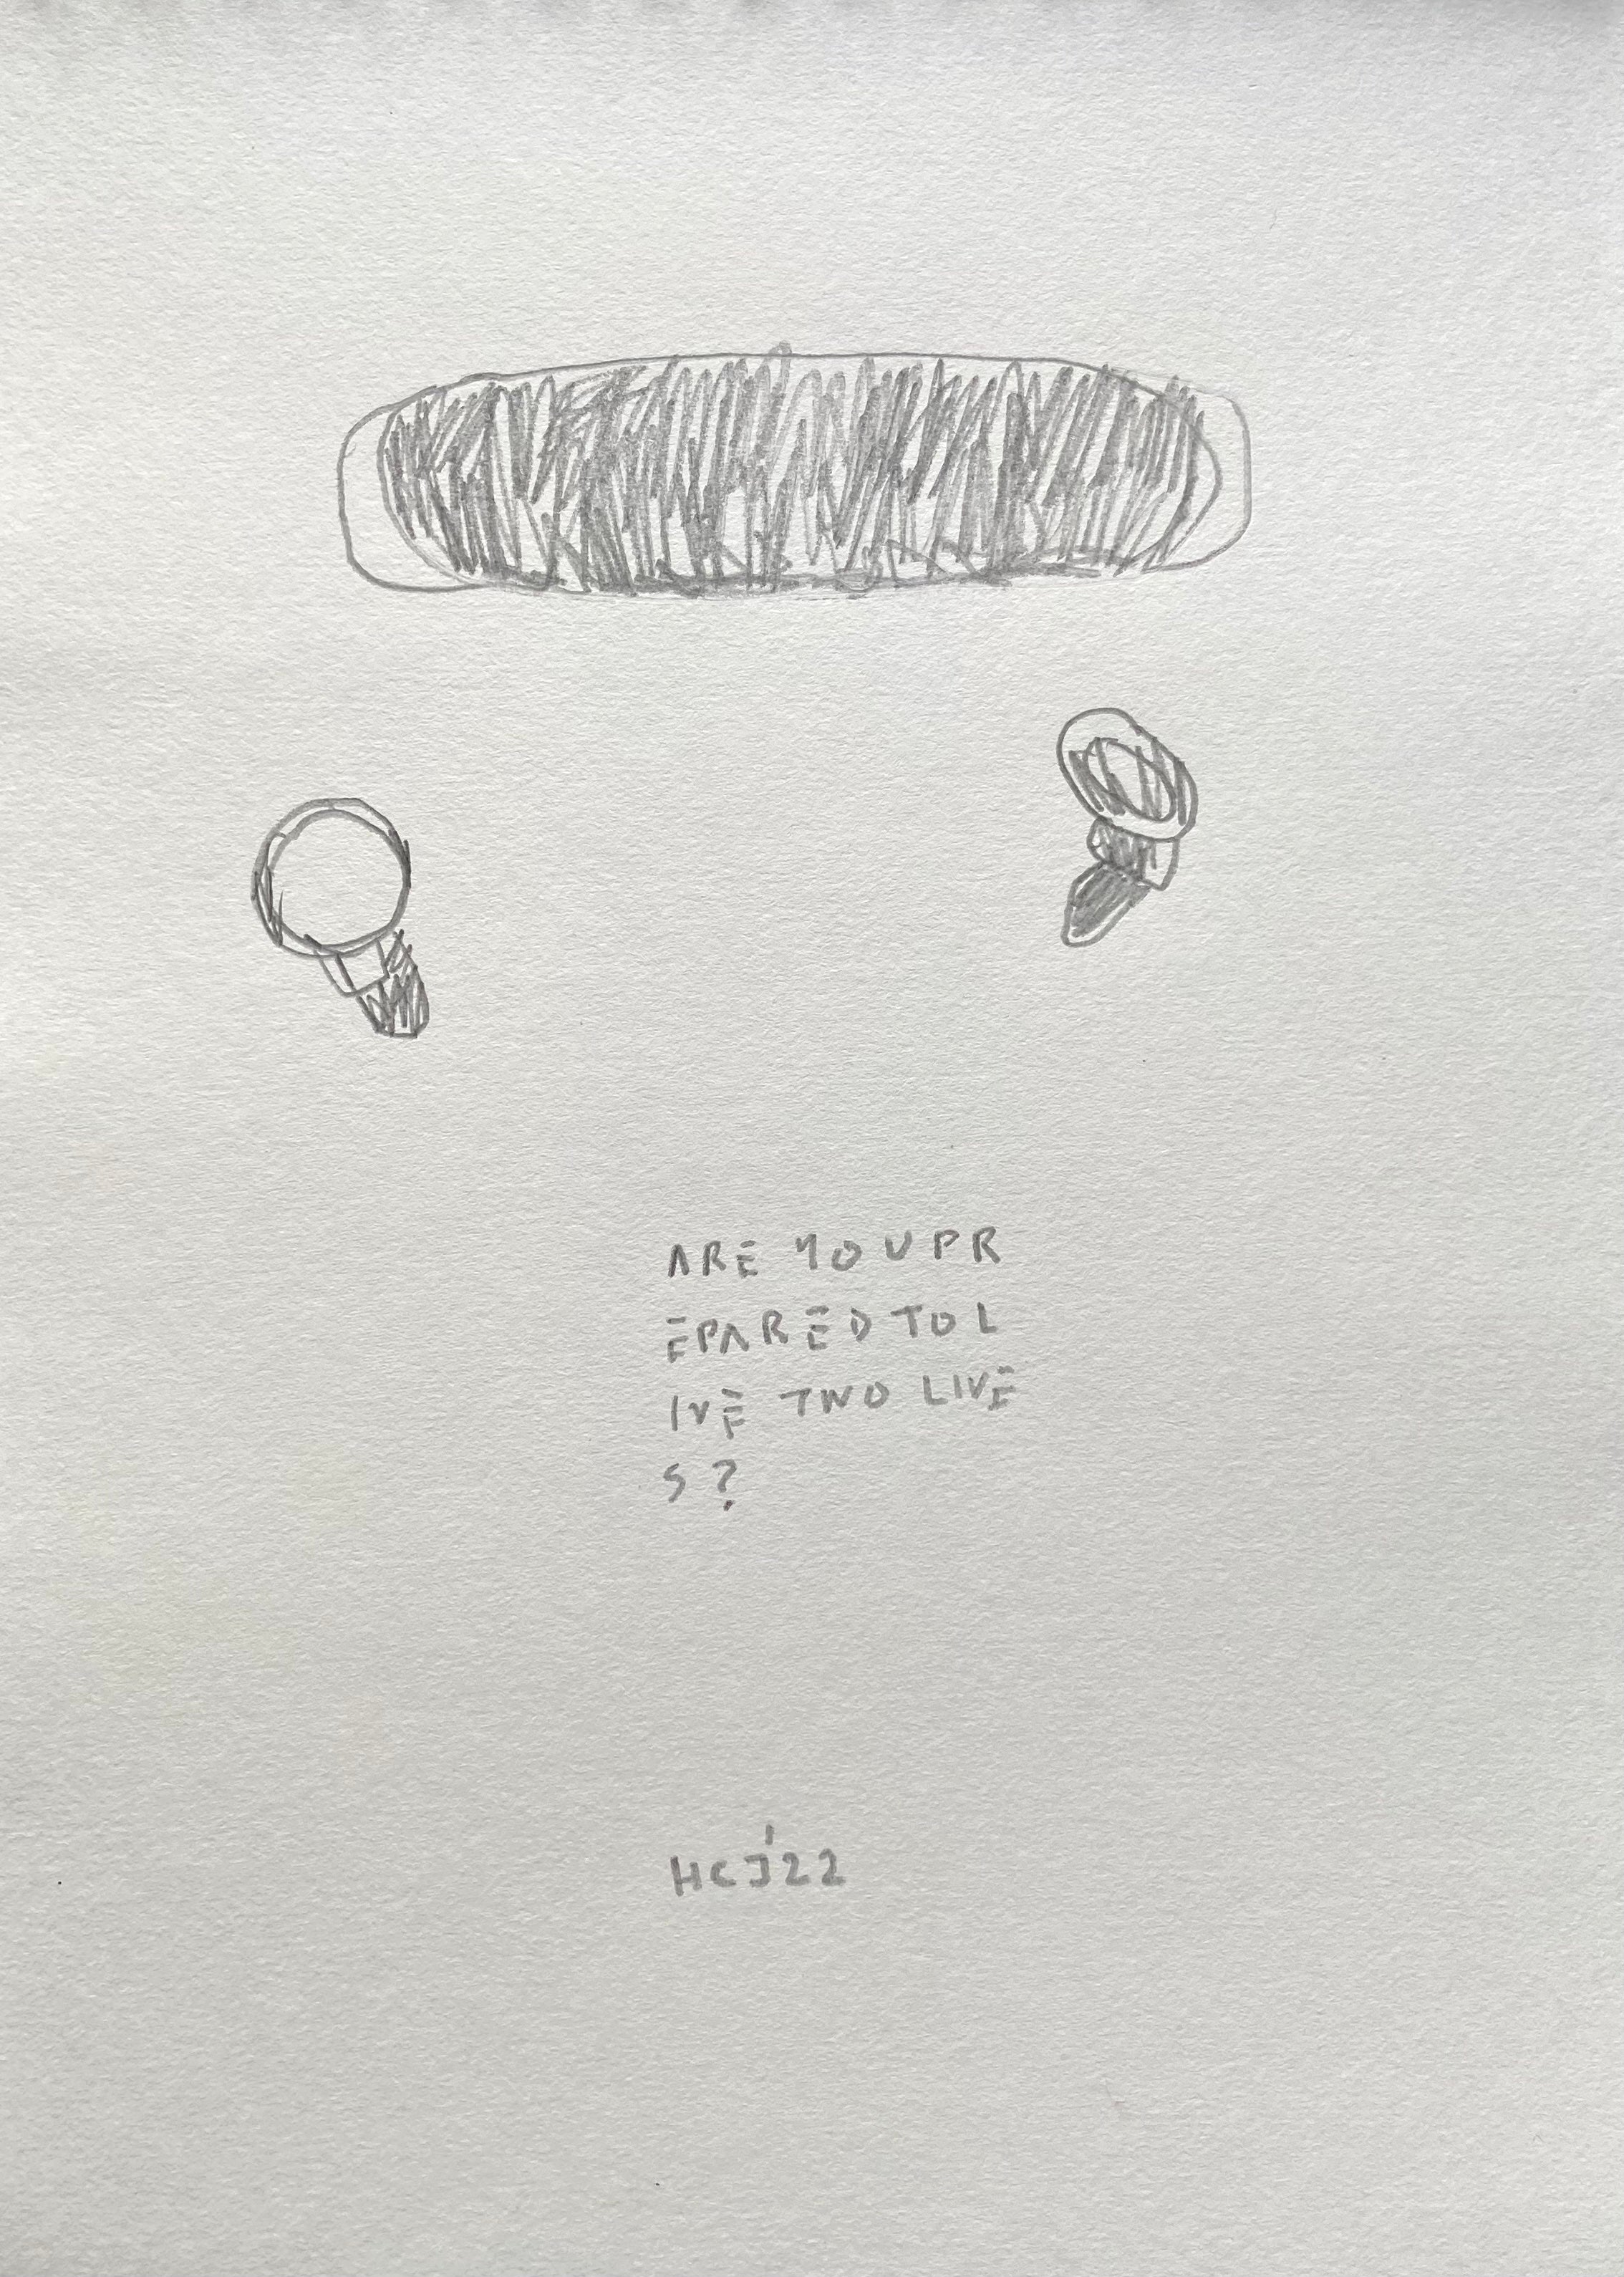 ARE YOU PR
EPARED TO L
IVE TWO LIVE
S?
HCJ'22